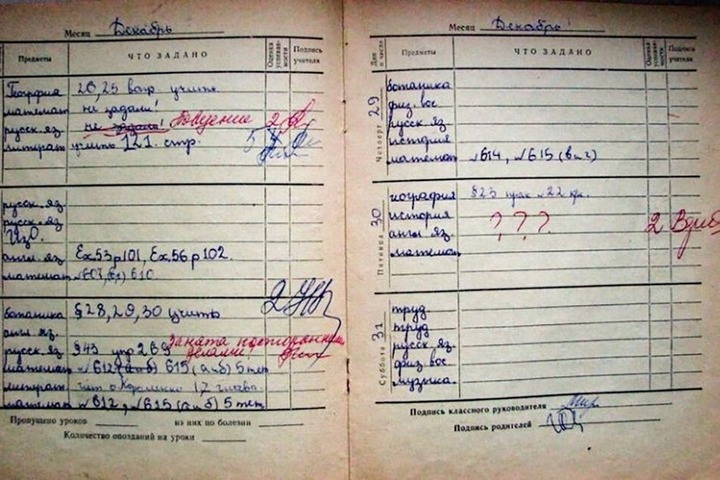 Месяц Декабрь
Предметы ЧТО ЗАДАНО Оценка успеваемости Подпись учителя
География 20, 25 вопр. учить
математ не задали!
русск. яз. не задали! Поведение 2
литерат учить 121. стр. 5
русск. яз.
русск. яз.
Изо.
англ. яз. Ex. 53 p 101, Ex. 56 p 102.
математ №607, 610
ботаника § 28, 29, 30 учить 2
англ. яз.
русск. яз. § 43 упр 269 Занята посторонними делами!
математ №612 (а б) 615 (а и б) 5 тет
литерат чит. о Короленко 17
математ №612, №615 (а и б) 5 тет
Пропущено уроков из них по болезни
Количество опозданий на уроки
Месяц Декабрь
Дни и число Предметы ЧТО ЗАДАНО Оценка успеваемости Подпись учителя
Четверг 29
ботаника
физ. вос
русск. яз.
история
математ №614, №615 (в и г)
Пятница 30
география § 23
история ???
англ. яз. 2
математ
Суббота 31
труд
труд
русск. яз.
физ вос
музыка.
Подпись классного руководителя
Подпись родителей